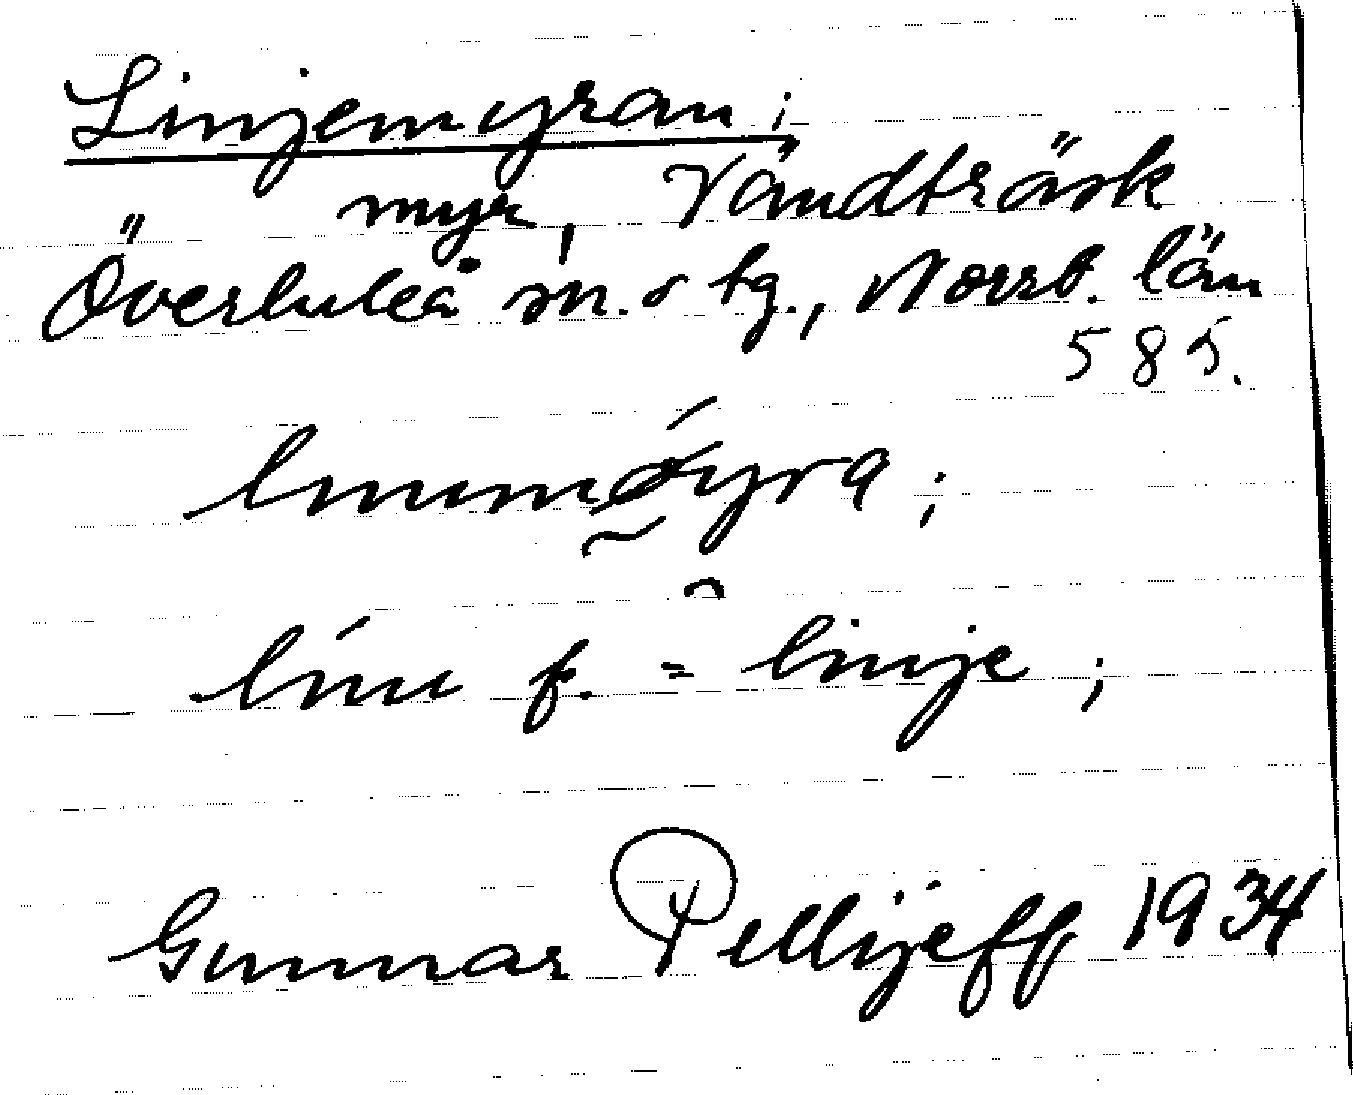 Linjemyran;
myr, Vändträsk
Överluleå sn. o tg., Norrb. län
585.
f. = linje;
Gunnar Pellijeff 1934